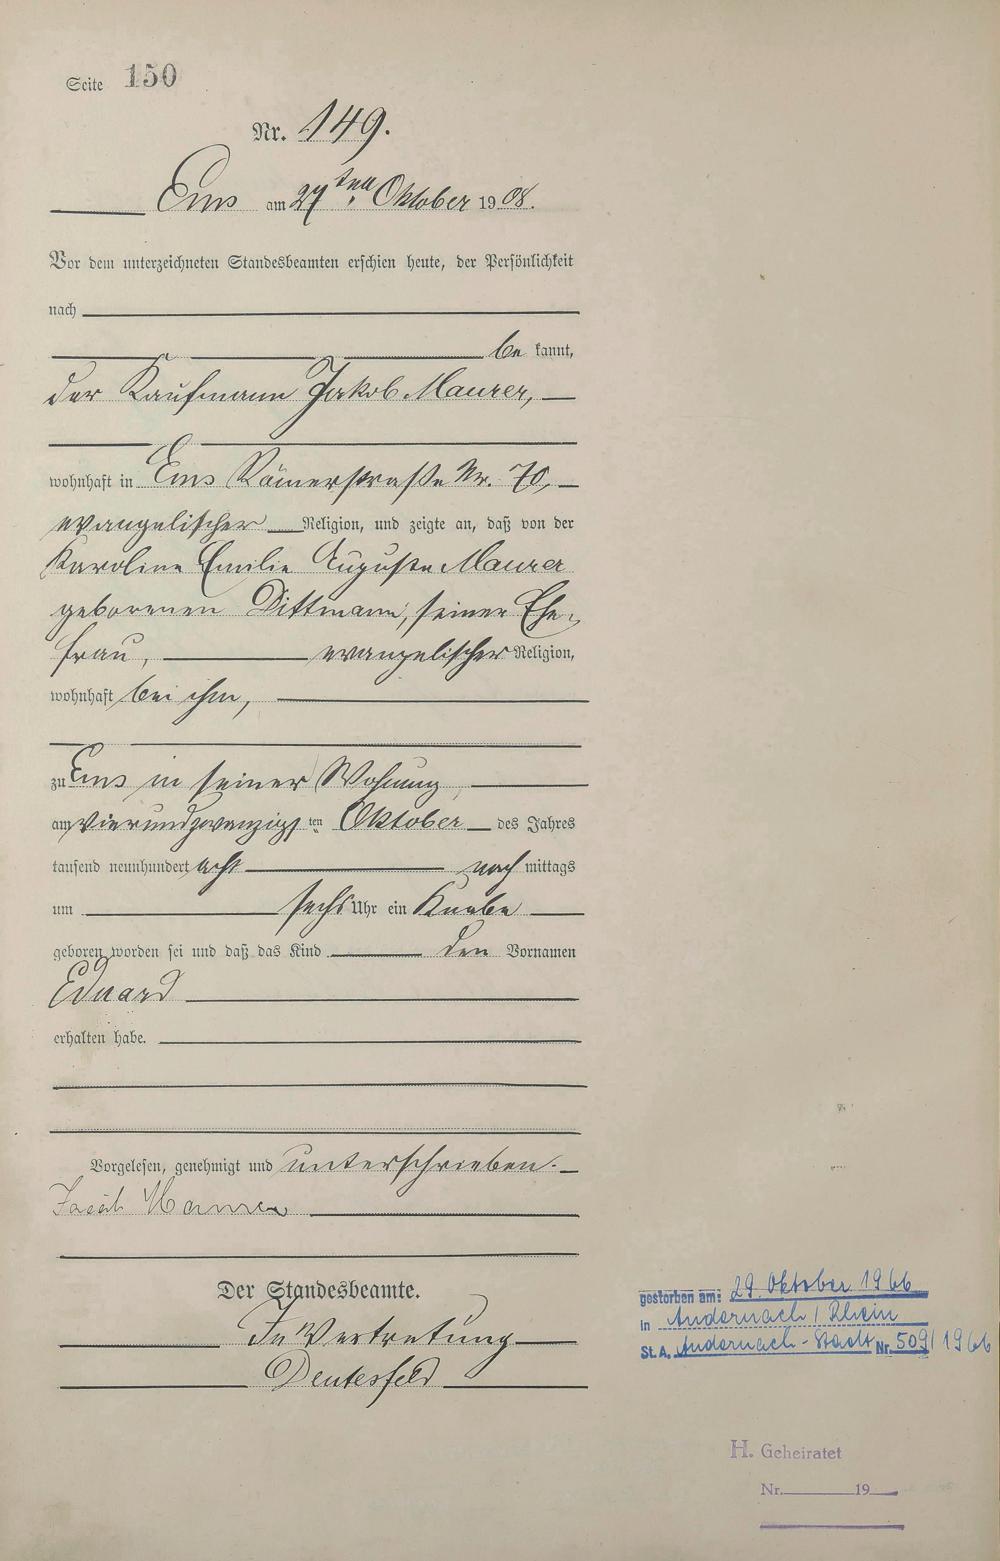 Seite 150
Nr. 149.
Ems am 27ten Oktober 1908.
Vor dem unterzeichneten Standesbeamten erschien heute, der Persönlichkeit
nach
be kannt,
der Kaufmann Jakob Maurer,
wohnhaft in Ems Römerstraße Nr. 70,
evangelischer Religion, und zeigte an, daß von der
Karoline Emilie Auguste Maurer
geborenen Dittmann, seiner Ehe-
frau, evangelischer Religion,
wohnhaft bei ihm,
zu Ems in seiner Wohnung,
am vierundzwanzigsten Oktober des Jahres
tausend neunhundert acht nach mittags
um sechs Uhr ein Knabe
geboren worden sei und daß das Kind den Vornamen
Eduard
erhalten habe.
Vorgelesen, genehmigt und unterschrieben.
Jacob Maurer
Der Standesbeamte.
In Vertretung
gestorben am: 29. Oktober 1966
in Andernach / Rhein
St. A. Andernach-Stadt Nr. 509/1966
H. Geheiratet
Nr. 19